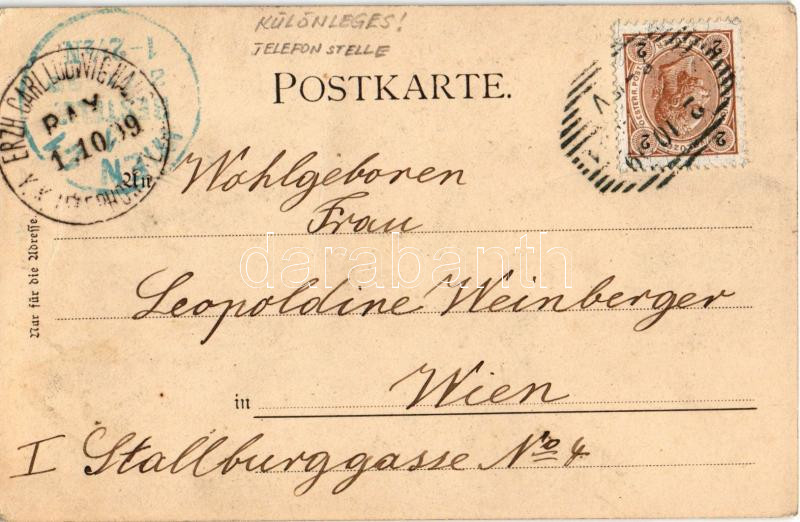 KÜLÖNLEGES!
TELEFON STELLE
POSTKARTE.
ERZH. CARL LUDWIG HAUS
RAX
1.10.99
WIEN
2
2
2
An Wohlgeboren
Frau
Leopoldine Weinberger
in Wien
I Stallburggasse No 4
Nur für die Adresse.
darabanth